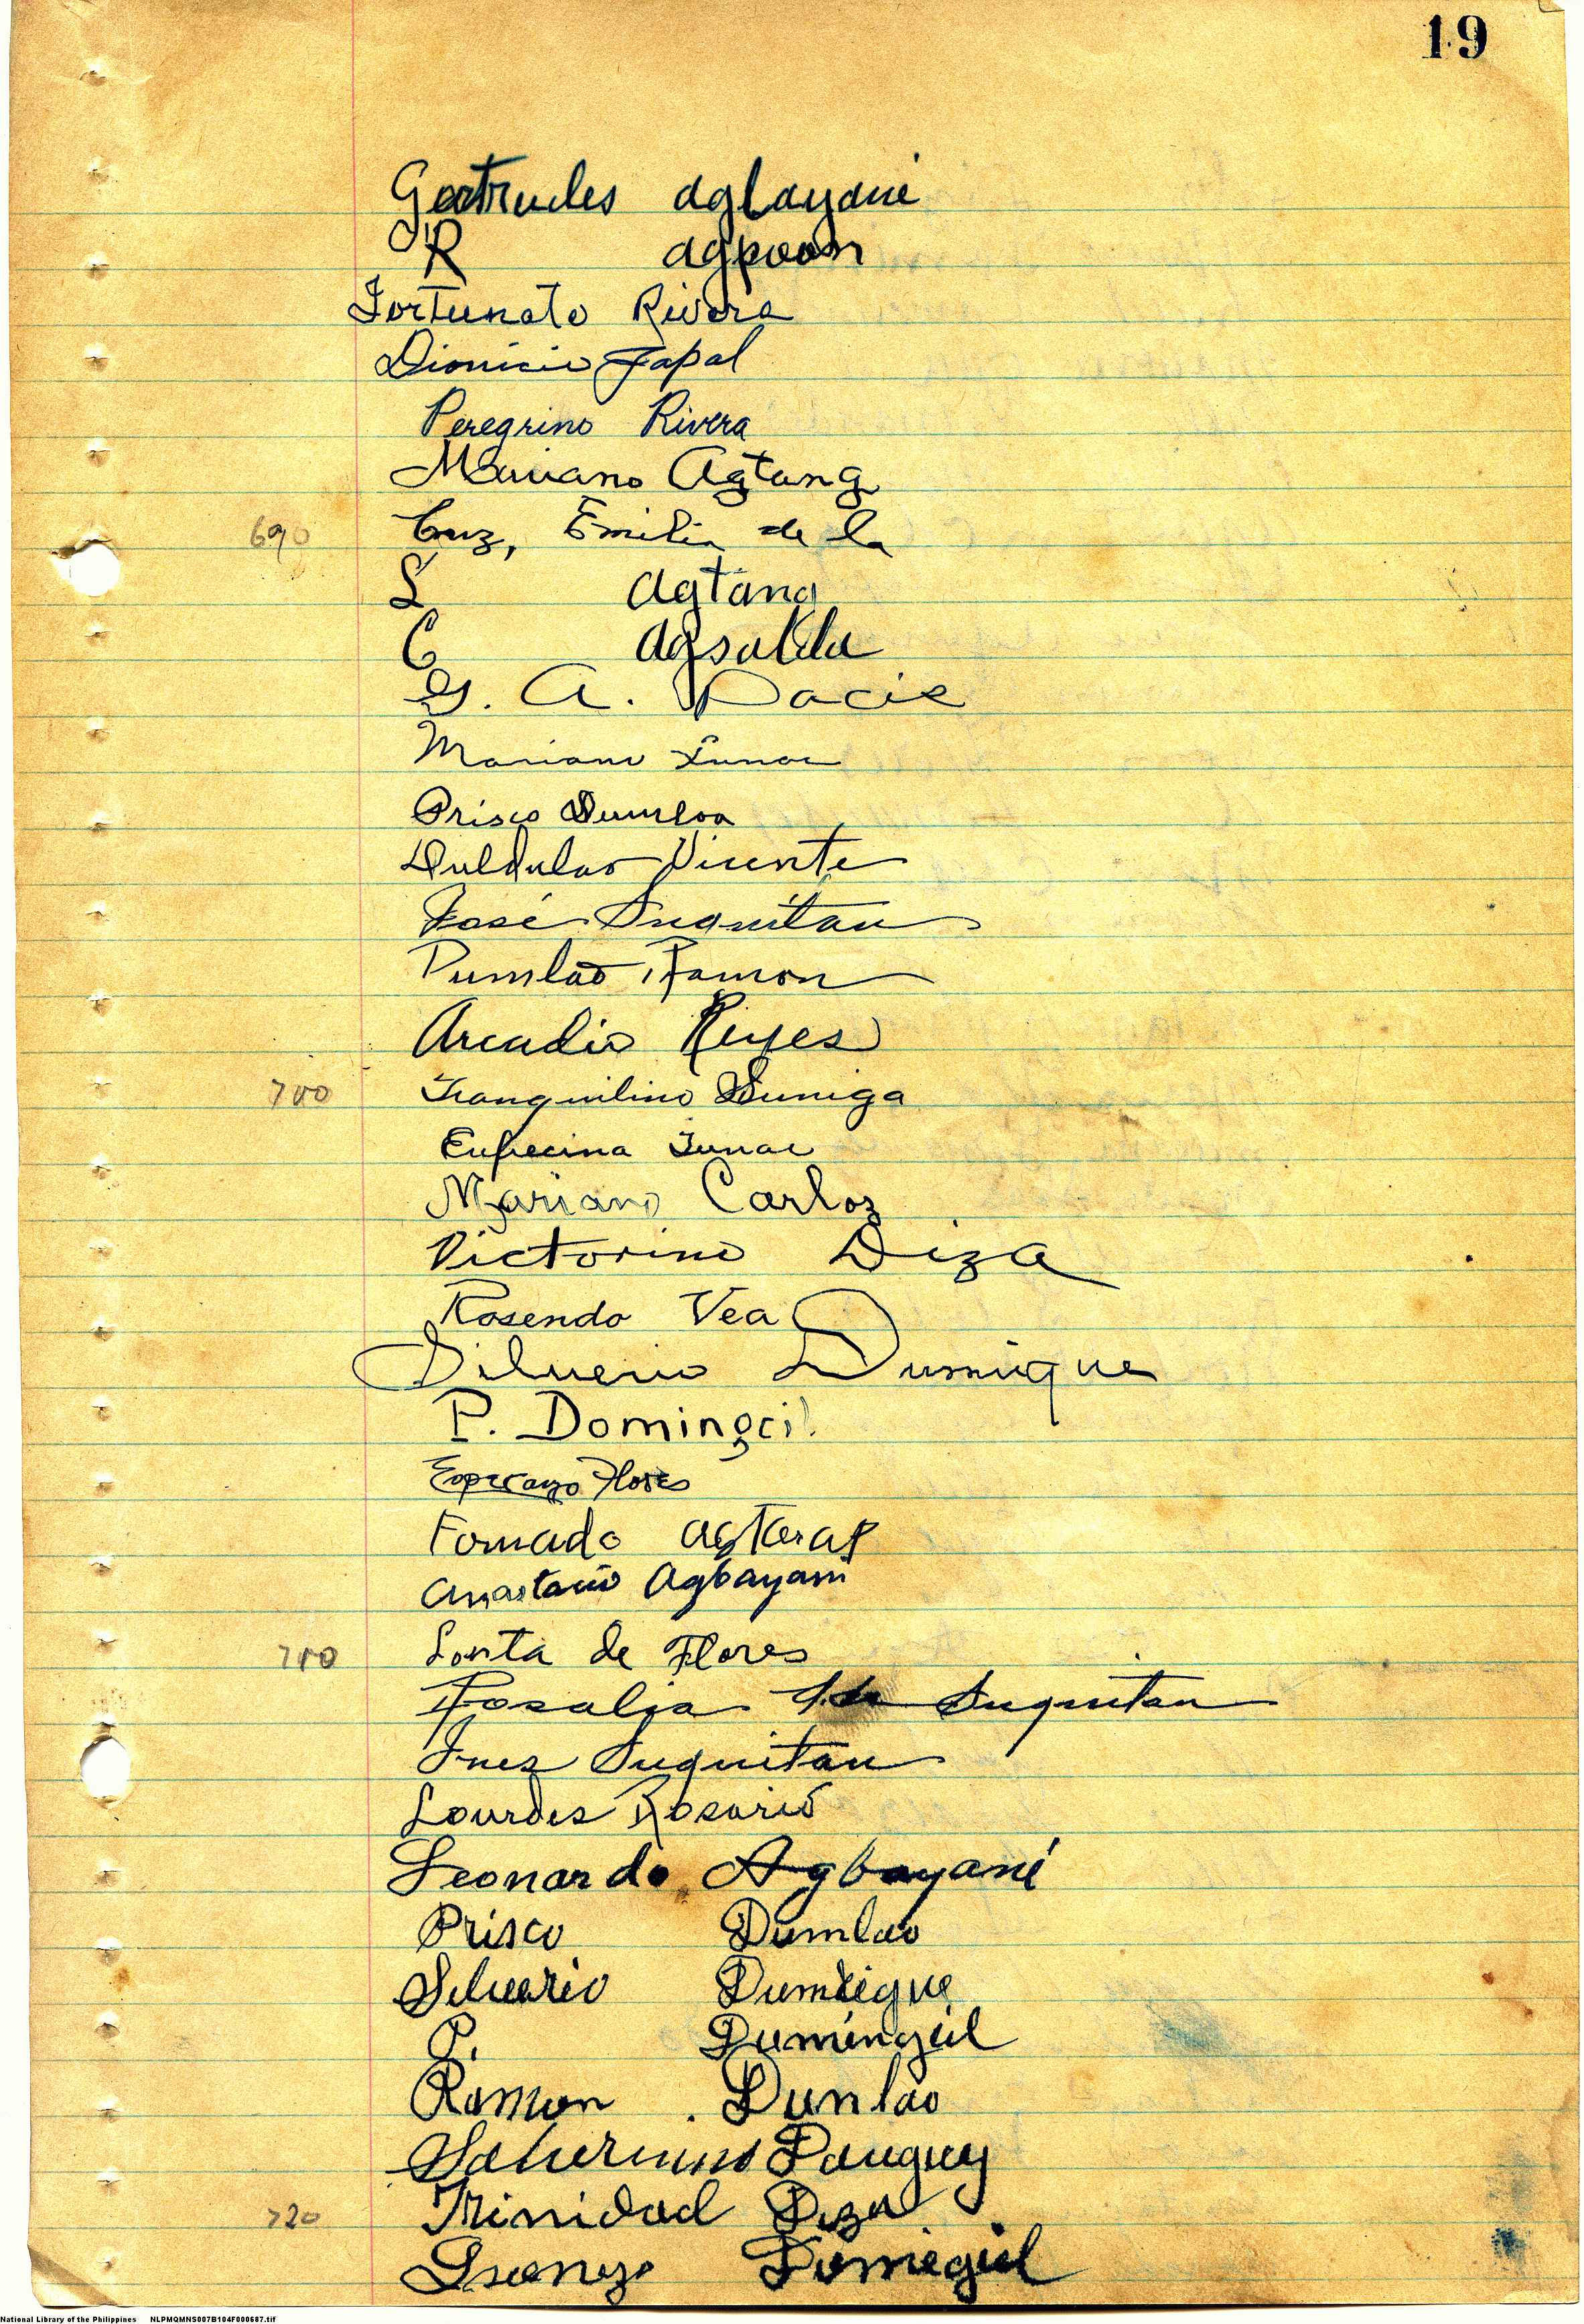 19
Gertrudes agbayani
R agpoon
Fortunato Rivera
Dionicio Japal
Peregrino Rivera
Mariano Agtang
690 Cruz, Emilia de la
L Agtang
C Agsalda
G. A. Dacie
Mariano
Prisco Dumloa
Duldulao Vicente
José Suguitan
Dumlao Ramon
Arcadio Reyes
700 Tranquilino Suniga
Mariano Carlos
Victorino Diza
Rosendo Vea
Silverio Dumigue
P. Domingcil
Flores
Agtarap
Anastacio Agbayani
710 de Flores
Rosalia Suguitan
Ines Suguitan
Lourdes Rosario
Leonardo Agbayani
Prisco Dumlao
Silverio
P. Dumingcil
Ramon Dunlao
720 Trinidad Diza
National Library of the Philippines NLPMQMNS007B104F000687.tif